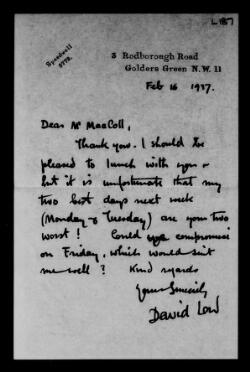 L187
Speedwell
5772.
3 Rodborough Road
Golders Green N.W. 11
Feb 16 1937.
Dear Mr MacColl,
Thank you. I should be
pleased to lunch with you &
but it is unfortunate that my
two best days next week
(Monday & Tuesday) are your two
worst! Could we compromise
on Friday, which would suit
me well? Kind regards
Yours Sincerely
David Low